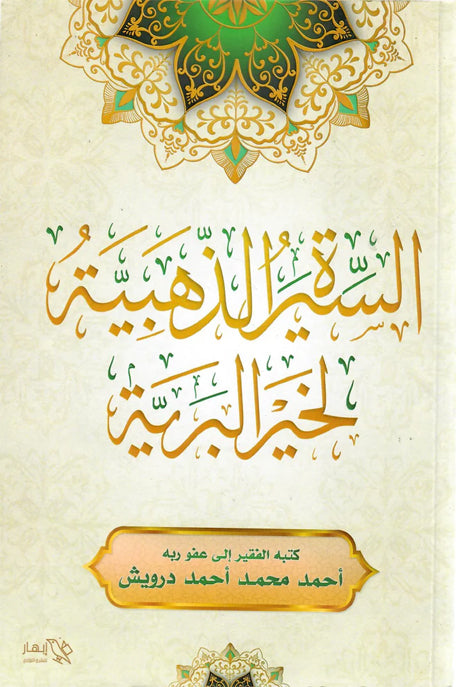 السِّيرَةُ الذَّهَبِيَّةُ
لخَيْرِ البَرِيَّةِ
كتبه الفقير إلى عفو ربه
أحمد محمد أحمد درويش
إبهار
للنشر والتوزيع